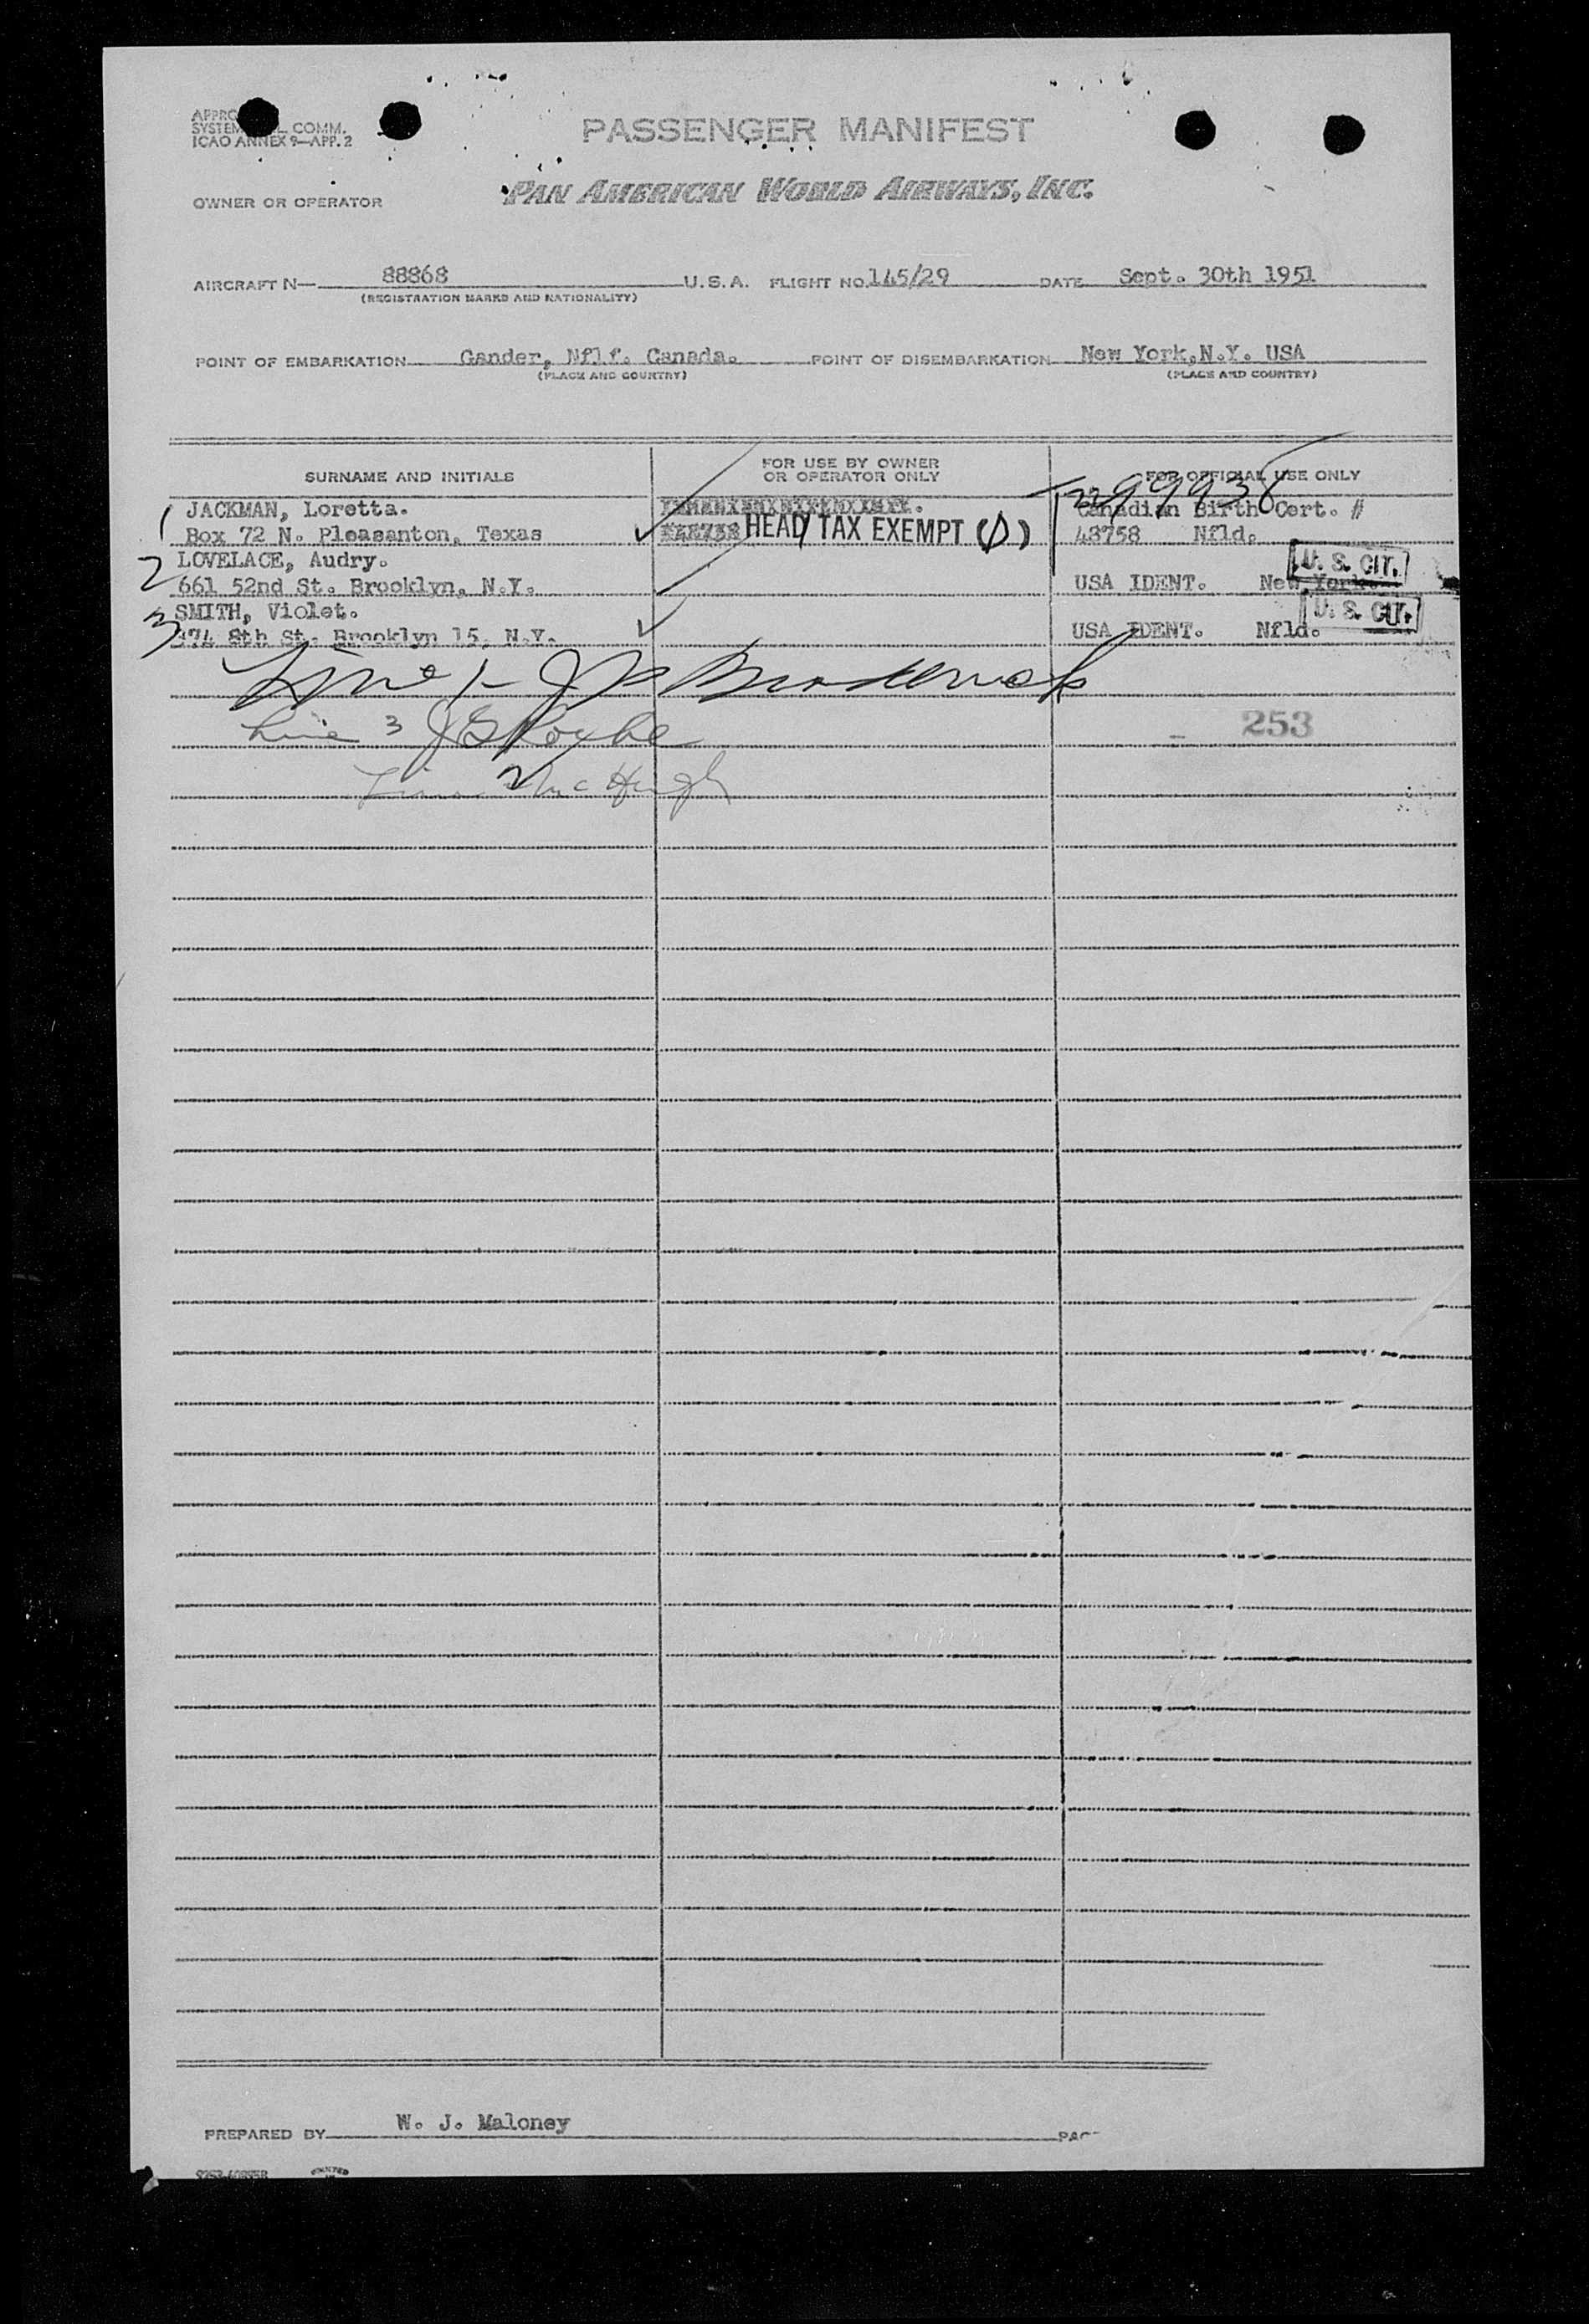 PASSENGER MANIFEST
SYSTEM COMM.
ICAO ANNEX 9—APP. 2
OWNER OR OPERATOR PAN AMERICAN WORLD AIRWAYS, INC.
AIRCRAFT N— 88868 U.S.A. FLIGHT NO. 145/29 DATE Sept. 30th 1951
(REGISTRATION MARKS AND NATIONALITY)
POINT OF EMBARKATION Gander, Nflf. Canada. POINT OF DISEMBARKATION New York,N.Y. USA
(PLACE AND COUNTRY) (PLACE AND COUNTRY)
SURNAME AND INITIALS FOR USE BY OWNER OR OPERATOR ONLY FOR OFFICIAL USE ONLY
1 JACKMAN, Loretta. Canadian Birth Cert. #
Box 72 N. Pleasanton, Texas HEAD TAX EXEMPT (1) 48758 Nfld.
2 LOVELACE, Audry. U. S. CIT.
661 52nd St. Brooklyn, N.Y. USA IDENT. New York
3 SMITH, Violet. U. S. CIT.
374 8th St. Brooklyn 15, N.Y. USA IDENT. Nfld.
Line 1- Broderick
Line 3 253
2 McHugh
PREPARED BY W. J. Maloney